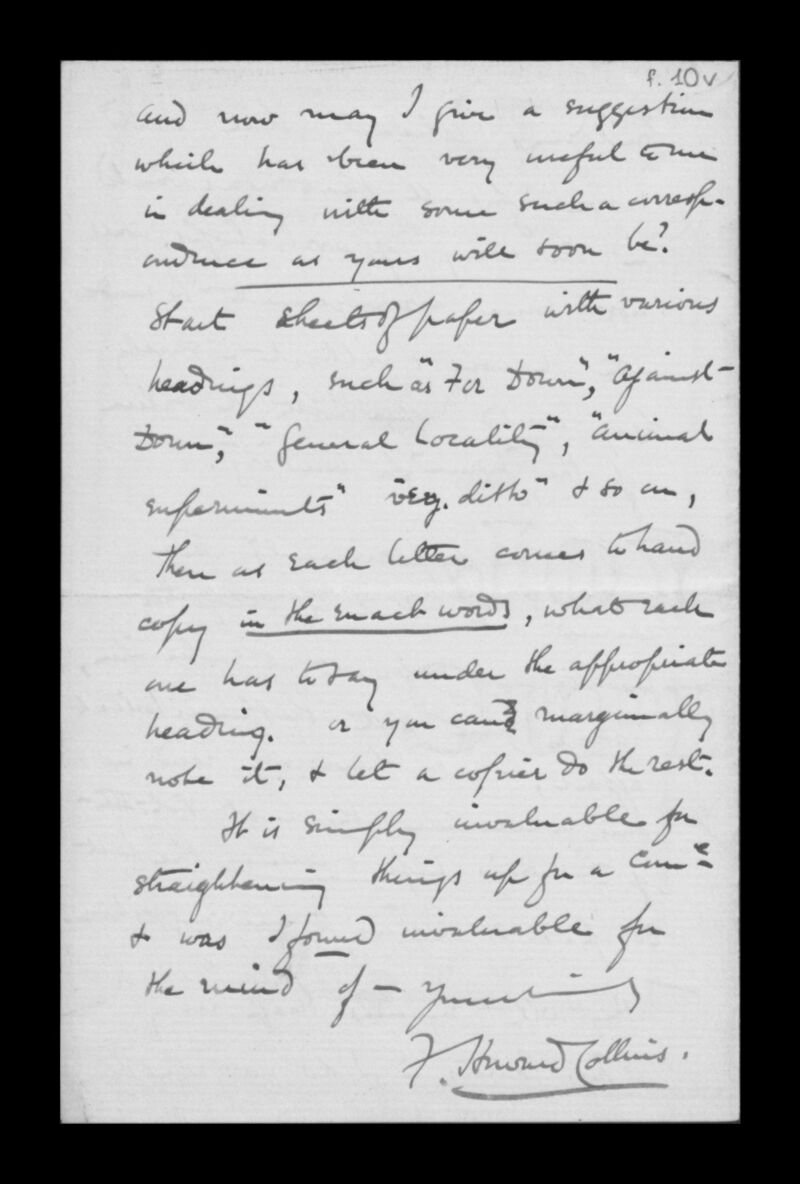 f. 10v
and now may I give a suggestion
which has been very useful to me
in dealing with some such a corresp-
ondence as yours will soon be?
Start sheets of paper with various
headings, such as "For Down", "Against
Down", "General Locality", "animal
experiments" "veg. ditto" & so on,
then as each letter comes to hand
copy in the exact words, what each
one has to say under the appropriate
heading. or you could marginally
note it, & let a copier do the rest.
It is simply invaluable for
straightening things up for a Com^ee
& was I found invaluable for
the mind of —
F. Howard Collins.